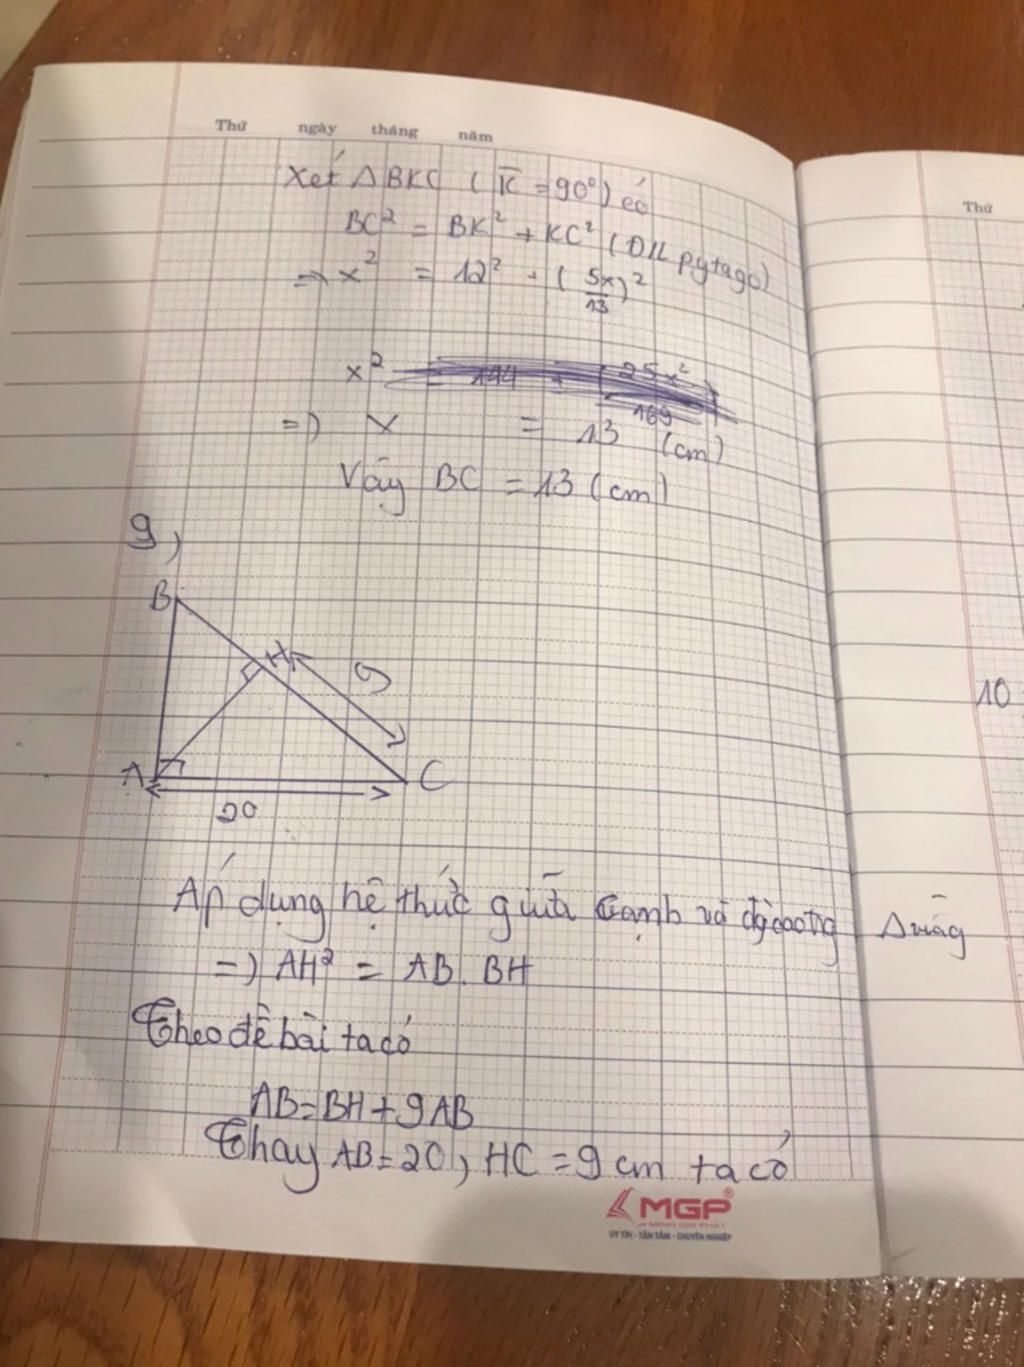 Thứ ngày tháng năm
Xét ΔBKC (K̂ = 90°) có
BC² = BK² + KC² (ĐL pytago)
=> x² = 12² + (5x/13)²
x²
=> x = 13 (cm)
Vậy BC = 13 (cm)
9)
B
H
9
A
C
20
Áp dụng hệ thức giữa cạnh và đường cao trong Δ vuông
=> AH² = AB.BH
Theo đề bài ta có
AB=BH+9AB
Thay AB=20, HC=9cm ta có
MGP®
MINH GIA PHÁT
UY TÍN - TẬN TÂM - CHUYÊN NGHIỆP
Thứ
10